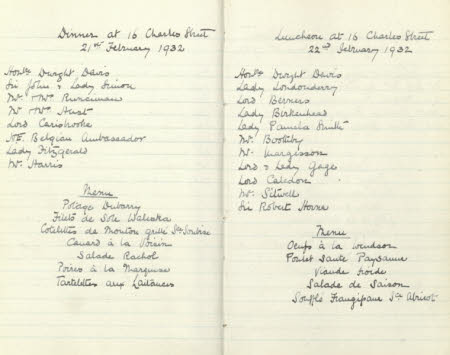 Dinner at 16 Charles Street
21st February 1932
Honble Dwight Davis
Sir John & Lady Simon
Mr & Mrs Runciman
Mr & Mrs
Lord Carisbrooke
H.E. Belgian Ambassador
Lady Fitzgerald
Mr. Harris
Menu
Potage Dubarry
Filets de Sole Waleska
Cotelettes de Mouton grillé Sce Soubise
Canard à la Voisin
Salade Rachel
Poires à la Marquise
Tartelettes aux Laitances
Luncheon at 16 Charles Street
22nd February 1932
Honble Dwight Davis
Lady Londonderry
Lord Berners
Lady Birkenhead
Lady Pamela Smith
Mr. Boothby
Mr. Margesson
Lord & Lady Gage
Lord Caledon
Mr. Sitwell
Sir Robert Horne
Menu
Oeufs à la Windsor
Poulet Sauté Paysanne
Viande froide
Salade de Saison
Soufflé Frangipane Sce Abricot